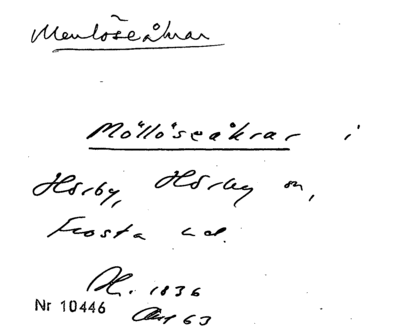 Menlöseåkrar
Möllöseåkrar i
Hörby, Hörby sn,
Frosta hd.
1836
Nr 10446
Akt 63